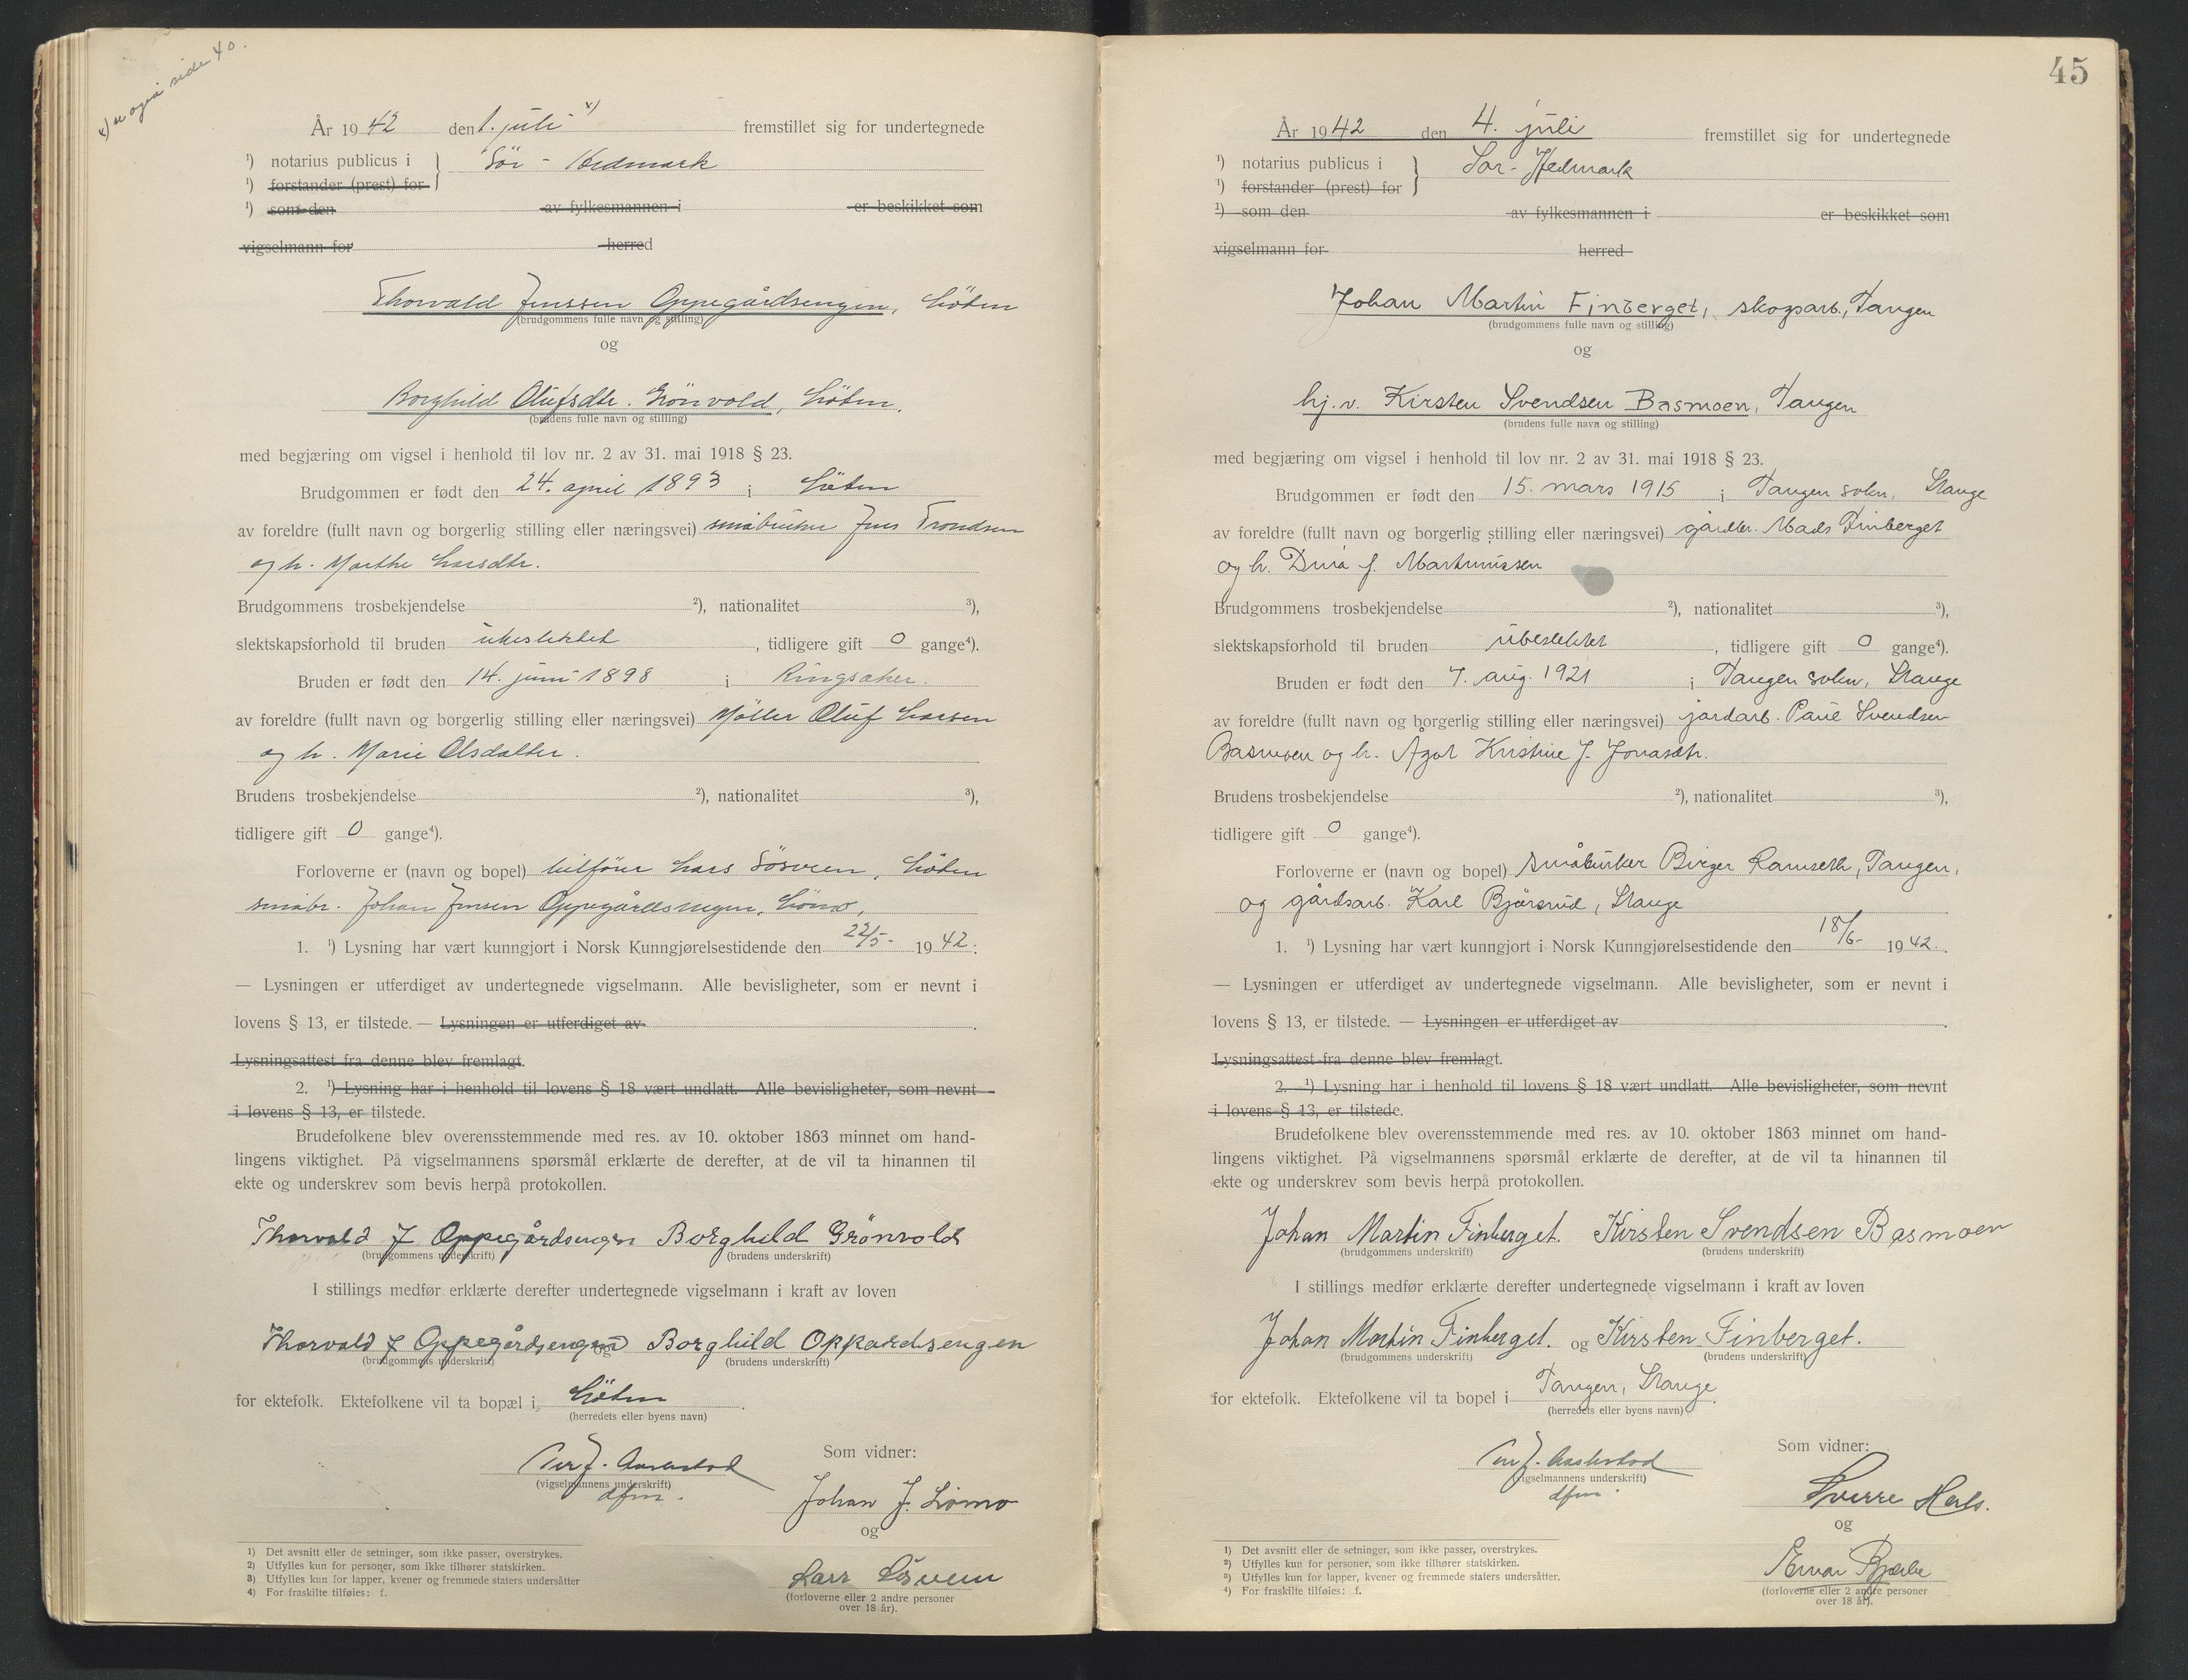 x) se også side 40.
År 1942 den 1. juli x) fremstillet sig for undertegnede
¹) notarius publicus i } Sör - Hedmark
¹) forstander (prest) for
¹) som den av fylkesmannen i er beskikket som
vigselmann for herred
Thorvald Jenssen Oppegårdsengen, Löten
(brudgommens fulle navn og stilling)
og
Borghild Olufsdtr. Grönvold, Löten.
(brudens fulle navn og stilling)
med begjæring om vigsel i henhold til lov nr. 2 av 31. mai 1918 § 23.
Brudgommen er født den 24. april 1893 i Löten
av foreldre (fullt navn og borgerlig stilling eller næringsvei) småbruker Jens Trondsen
og h. Marthe Larsdtr.
Brudgommens trosbekjendelse ²), nationalitet ³),
slektskapsforhold til bruden ubeslektet, tidligere gift 0 gange⁴).
Bruden er født den 14. juni 1898 i Ringsaker.
av foreldre (fullt navn og borgerlig stilling eller næringsvei) Möller Oluf Larsen
og h. Marie Olsdatter.
Brudens trosbekjendelse ²), nationalitet ³),
tidligere gift 0 gange⁴).
Forloverne er (navn og bopel) Lars Lösveen, Löten
småbr. Johan Jensen Oppegårdsengen, Lömo,
1. ¹) Lysning har vært kunngjort i Norsk Kunngjørelsestidende den 22/5- 1942:
— Lysningen er utferdiget av undertegnede vigselmann. Alle bevisligheter, som er nevnt i
lovens § 13, er tilstede. — Lysningen er utferdiget av .
Lysningsattest fra denne blev fremlagt.
2. ¹) Lysning har i henhold til lovens § 18 vært undlatt. Alle bevisligheter, som nevnt
i lovens § 13, er tilstede.
Brudefolkene blev overensstemmende med res. av 10. oktober 1863 minnet om hand-
lingens viktighet. På vigselmannens spørsmål erklærte de derefter, at de vil ta hinannen til
ekte og underskrev som bevis herpå protokollen.
Thorvald J Oppegårdsengen Borghild Grönvold
(brudgommens underskrift) (brudens underskrift)
I stillings medfør erklærte derefter undertegnede vigselmann i kraft av loven
Thorvald J Oppegårdsengen og Borghild Oppardsengen
(brudgommens underskrift) (brudens underskrift)
for ektefolk. Ektefolkene vil ta bopæl i Löten.
(herredets eller byens navn)
Per J. Aasterbod
(vigselmannens underskrift)
dfm.
Som vidner:
Johan J. Lömo
og
Lars Lösveen
(forloverne eller 2 andre personer
over 18 år).
1) Det avsnitt eller de setninger, som ikke passer, overstrykes.
2) Utfylles kun for personer, som ikke tilhører statskirken.
3) Utfylles kun for lapper, kvener og fremmede staters undersåtter
4) For fraskilte tilføies: f.
45
År 1942 den 4. juli fremstillet sig for undertegnede
¹) notarius publicus i } Sør-Hedmark
¹) forstander (prest) for
¹) som den av fylkesmannen i er beskikket som
vigselmann for herred
Johan Martin Finberget, skogsarb., Tangen
(brudgommens fulle navn og stilling)
og
hj.v. Kirsten Svendsen Basmoen, Tangen
(brudens fulle navn og stilling)
med begjæring om vigsel i henhold til lov nr. 2 av 31. mai 1918 § 23.
Brudgommen er født den 15. mars 1915 i Tangen sokn, Stange
av foreldre (fullt navn og borgerlig stilling eller næringsvei) gårdbr. Mads Finberget
og h. Dina f. Martinussen
Brudgommens trosbekjendelse ²), nationalitet ³),
slektskapsforhold til bruden ubeslektet, tidligere gift 0 gange⁴).
Bruden er født den 7. aug. 1921 i Tangen sokn, Stange
av foreldre (fullt navn og borgerlig stilling eller næringsvei) jordarb. Paul Svendsen
Basmoen og h. Agot Kristine f. Jonasdtr.
Brudens trosbekjendelse ²), nationalitet ³),
tidligere gift 0 gange⁴).
Forloverne er (navn og bopel) småbruker Birger Ramseth, Tangen,
og gårdsarb. Karl Bjørsrud, Stange
1. ¹) Lysning har vært kunngjort i Norsk Kunngjørelsestidende den 18/6- 1942.
— Lysningen er utferdiget av undertegnede vigselmann. Alle bevisligheter, som er nevnt i
lovens § 13, er tilstede. — Lysningen er utferdiget av .
Lysningsattest fra denne blev fremlagt.
2. ¹) Lysning har i henhold til lovens § 18 vært undlatt. Alle bevisligheter, som nevnt
i lovens § 13, er tilstede.
Brudefolkene blev overensstemmende med res. av 10. oktober 1863 minnet om hand-
lingens viktighet. På vigselmannens spørsmål erklærte de derefter, at de vil ta hinannen til
ekte og underskrev som bevis herpå protokollen.
Johan Martin Finberget. Kirsten Svendsen Basmoen
(brudgommens underskrift) (brudens underskrift)
I stillings medfør erklærte derefter undertegnede vigselmann i kraft av loven
Johan Martin Finberget. og Kirsten Finberget.
(brudgommens underskrift) (brudens underskrift)
for ektefolk. Ektefolkene vil ta bopel i Tangen, Stange.
(herredets eller byens navn)
Per J. Aasterbod
(vigselmannens underskrift)
dfm.
Som vidner:
Sverre
og
(forloverne eller 2 andre personer
over 18 år).
1) Det avsnitt eller de setninger, som ikke passer, overstrykes.
2) Utfylles kun for personer, som ikke tilhører statskirken.
3) Utfylles kun for lapper, kvener og fremmede staters undersåtter.
4) For fraskilte tilføies: f.